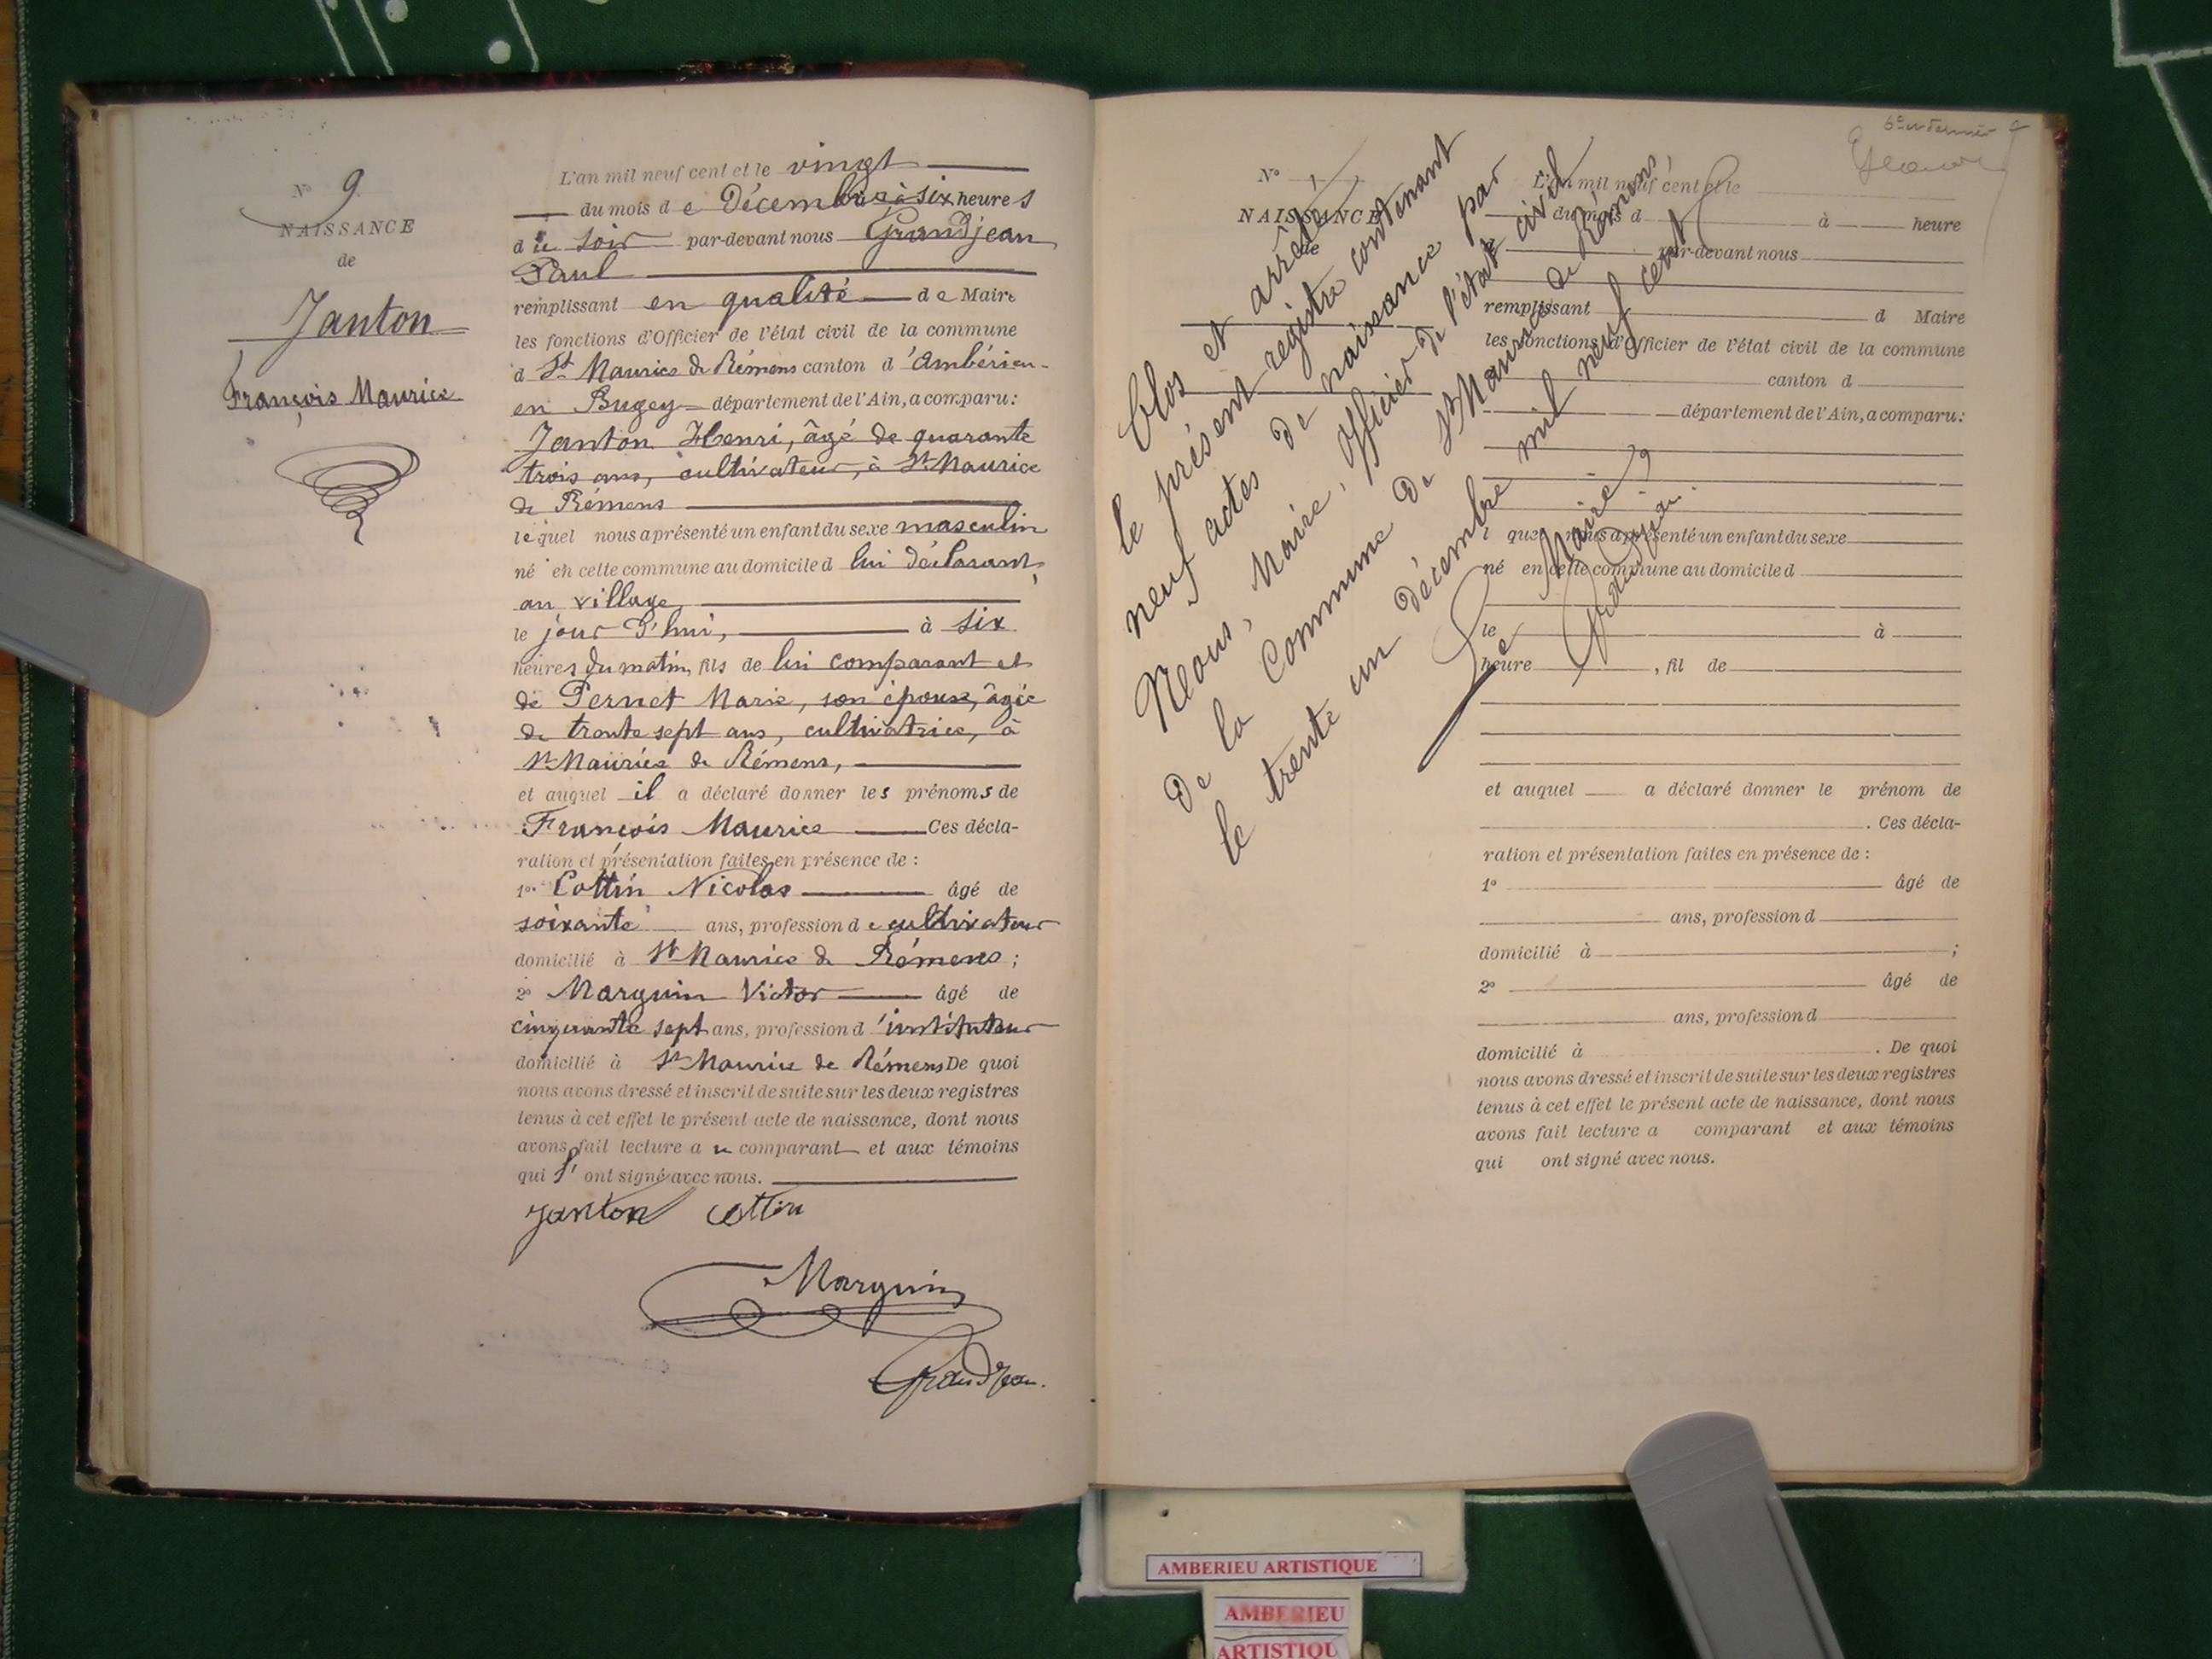 N° 9
NAISSANCE
de
Janton
François Maurice
L'an mil neuf cent et le vingt
du mois de Décembre à six heures
du soir par-devant nous Grandjean
Paul
remplissant en qualité de Maire
les fonctions d'Officier de l'état civil de la commune
d St Maurice de Rémens canton d'Ambérieu-
en Bugey département de l'Ain, a comparu:
Janton Henri, âgé de quarante
trois ans, cultivateur, à St Maurice
de Rémens
lequel nous a présenté un enfant du sexe masculin
né en cette commune au domicile d lui déclarant,
au village,
le jour d'hui, à six
heures du matin, fils de lui comparant et
de Pernet Marie, son épouse, âgée
de trente sept ans, cultivatrice, à
St Maurice de Rémens,
et auquel il a déclaré donner les prénoms de
François Maurice Ces décla-
ration et présentation faites en présence de :
1° Cottin Nicolas âgé de
soixante ans, profession de cultivateur
domicilié à St Maurice de Rémens ;
2° Marguin Victor âgé de
cinquante sept ans, profession d'instituteur
domicilié à St Maurice de Rémens De quoi
nous avons dressé et inscrit de suite sur les deux registres
tenus à cet effet le présent acte de naissance, dont nous
avons fait lecture au comparant et aux témoins
qui l'ont signé avec nous.
Janton Cottin
Marguin
Grandjean.
Clos et arrêté
le présent registre contenant
neuf actes de naissance par
Nous, Maire, Officier de l'état civil
de la Commune de St Maurice de Rémens,
le trente un décembre mil neuf cent
Le Maire
Grandjean.
N° 1
NAISSANCE
de
L'an mil neuf cent et le
du mois d à heure
par-devant nous
remplissant d Maire
les fonctions d'Officier de l'état civil de la commune
canton d
département de l'Ain, a comparu:
l quel nous a présenté un enfant du sexe
né en cette commune au domicile d
le à
heure , fil de
et auquel a déclaré donner le prénom de
. Ces décla-
ration et présentation faites en présence de :
1° âgé de
ans, profession d
domicilié à ;
2° âgé de
ans, profession d
domicilié à . De quoi
nous avons dressé et inscrit de suite sur les deux registres
tenus à cet effet le présent acte de naissance, dont nous
avons fait lecture a comparant et aux témoins
qui ont signé avec nous.
AMBERIEU ARTISTIQUE
AMBERIEU
ARTISTIQU